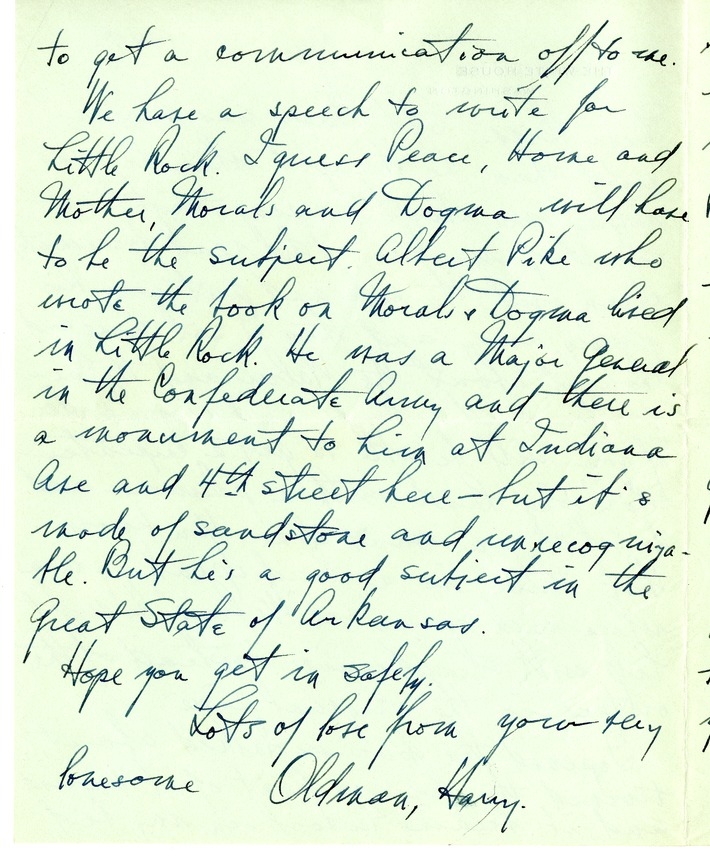 to get a communication off to me.
We have a speech to write for
Little Rock. I guess Peace, Home and
Mother, Morals and Dogma will have
to be the subject. Albert Pike who
wrote the book on Morals & Dogma lived
in Little Rock. He was a Major General
in the Confederate Army and there is
a monument to him at Indiana
Ave and 4th street here - but it's
made of sandstone and unrecogniza-
ble. But he's a good subject in the
great State of Arkansas.
Hope you get in safely.
Lots of love from your very
lonesome Oldman, Harry.